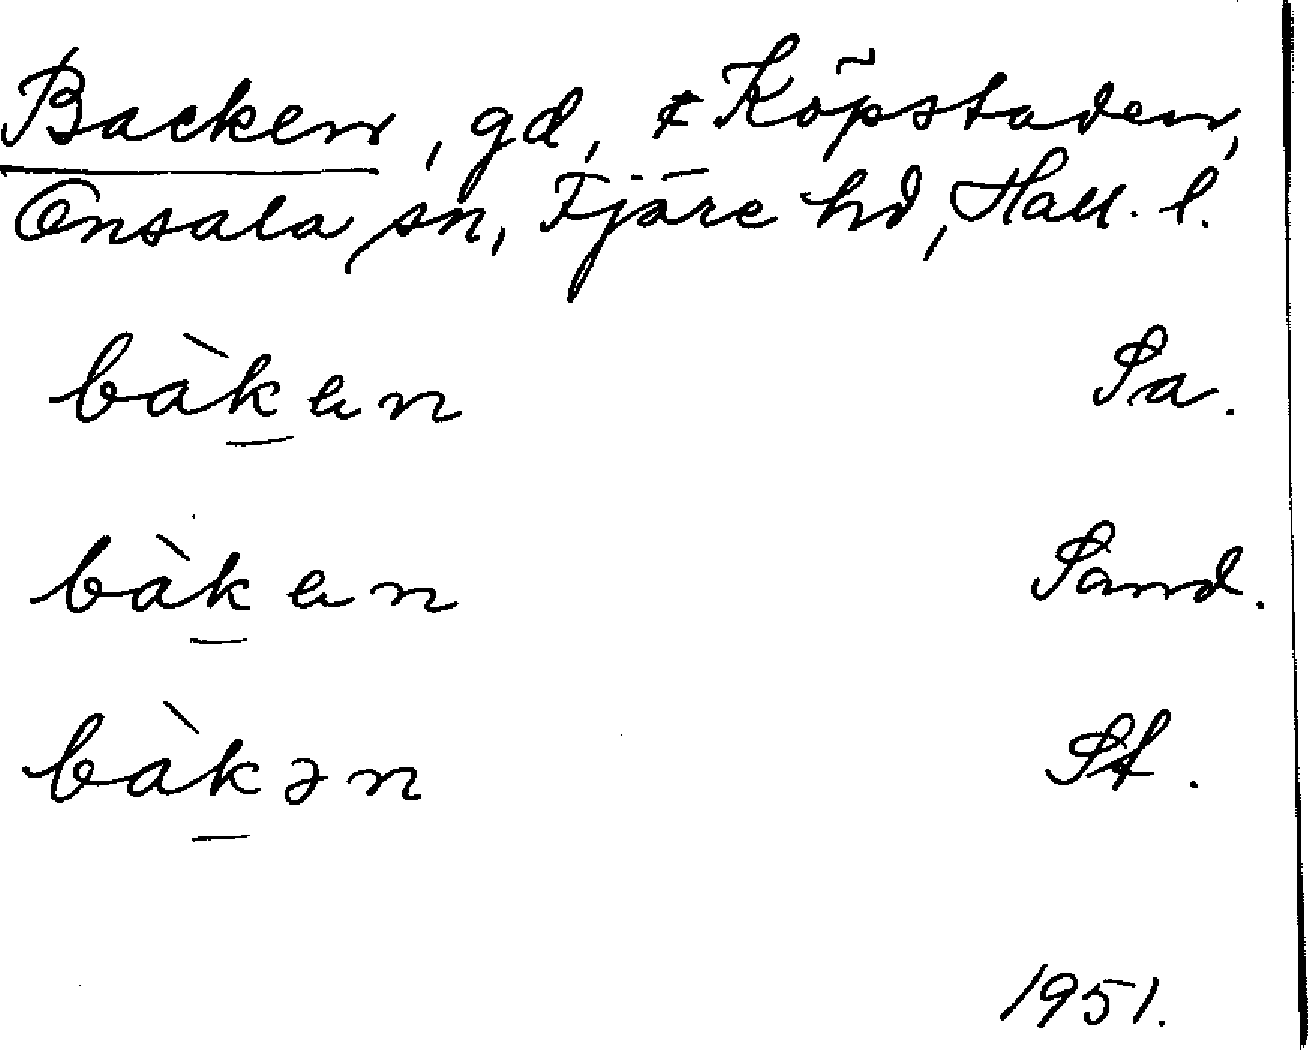 Backen, gd, Köpstaden,
Onsala sn, Fjäre hd, Hall. l.
bàkɐn Sa.
bàkɐn Sand.
bàkən St.
1951.